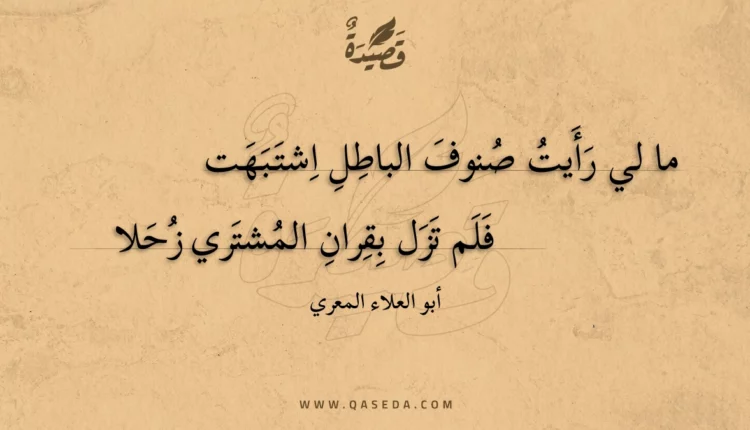 قَصِيدَةٌ
ما لي رَأَيتُ صُنوفَ الباطِلِ اِشتَبَهَت
فَلَم تَزَل بِقِرانِ المُشتَري زُحَلا
أبو العلاء المعري
WWW.QASEDA.COM